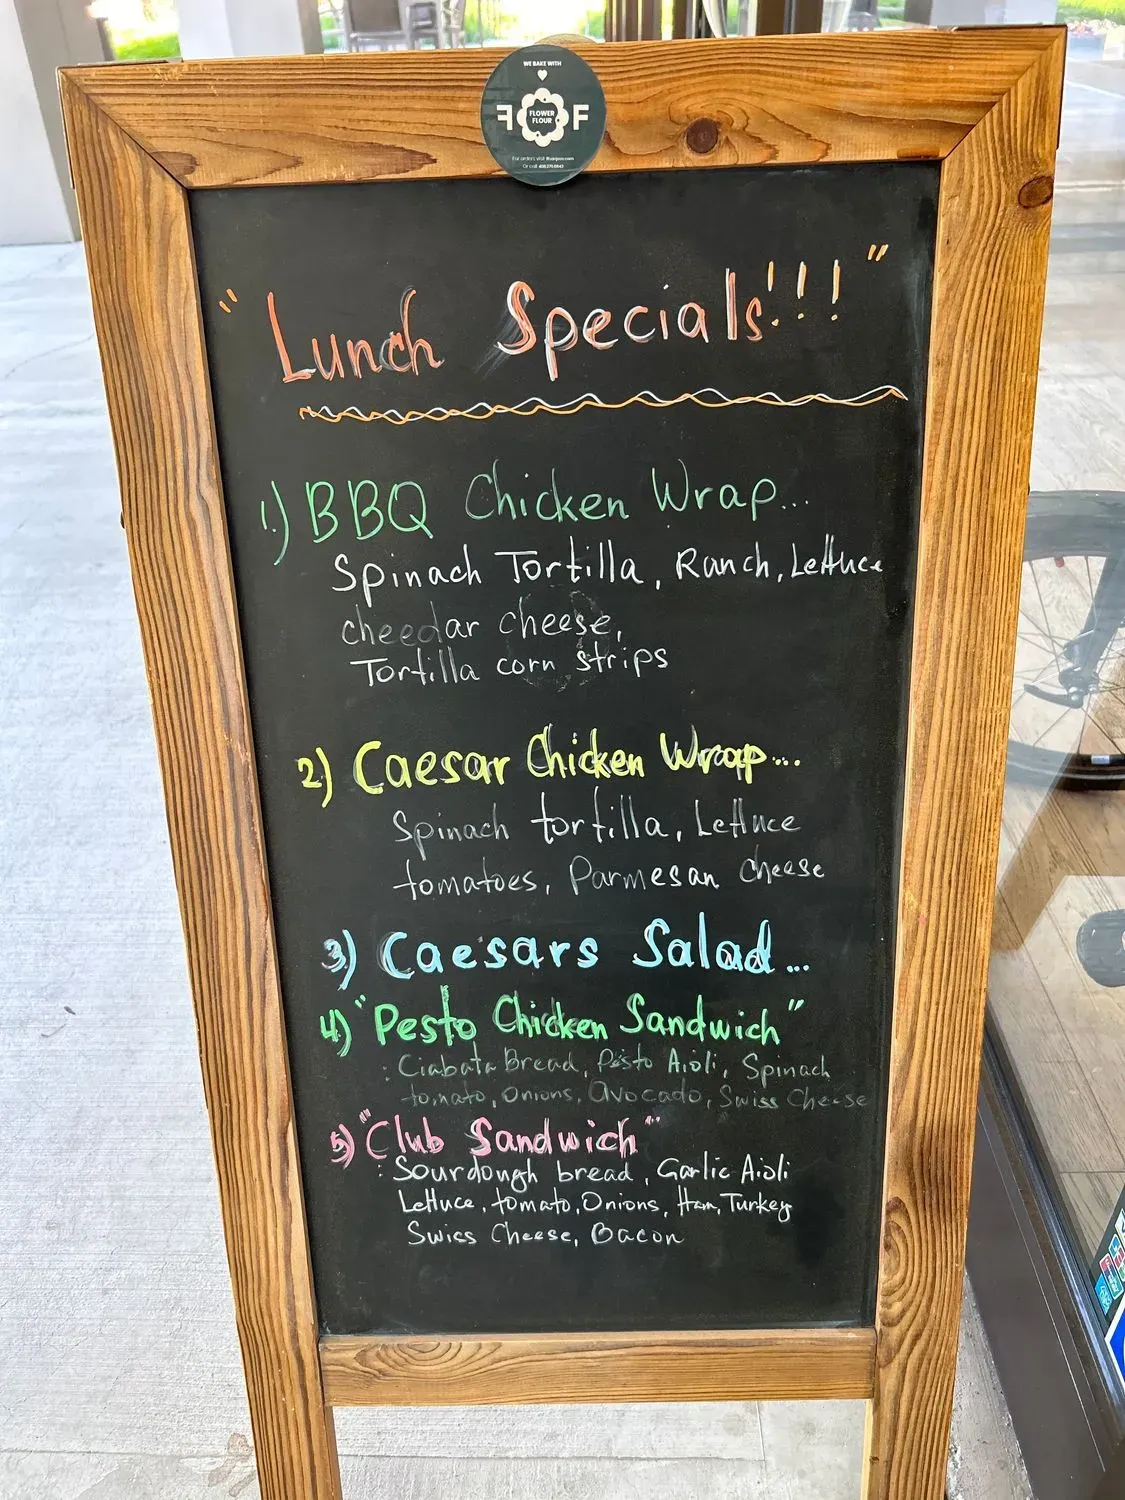 WE BAKE WITH
F FLOWER FLOUR F
For orders visit
Or call
"Lunch Specials!!!"
1.) BBQ Chicken Wrap...
Spinach Tortilla, Ranch, Lettuce
cheedar cheese,
Tortilla corn strips
2) Caesar Chicken Wrap...
Spinach tortilla, Lettuce
tomatoes, Parmesan cheese
3) Caesars Salad...
4) "Pesto Chicken Sandwich"
: Ciabata Bread, Pesto Aioli, Spinach
tomato, onions, avocado, Swiss Cheese
5) "Club Sandwich"
: Sourdough bread, Garlic Aioli
Lettuce, tomato, Onions, Ham, Turkey
Swiss Cheese, Bacon